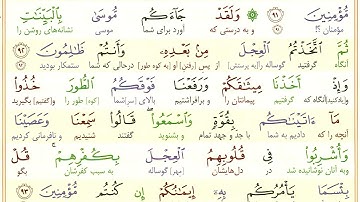 مُؤْمِنِينَ ﴿٩١﴾ وَلَقَدْ جَاءَكُم مُوسَىٰ بِالْبَيِّنَاتِ
مؤمنان ؟! و به درستی که آورد برای شما موسی نشانه‌های روشن را
ثُمَّ اتَّخَذْتُمُ الْعِجْلَ مِنْ بَعْدِهِ وَأَنْتُمْ ظَالِمُونَ ﴿٩٢﴾
آنگاه گرفتید گوساله را [به پرستش] از پس [رفتن] او [به کوه طور] درحالی که شما ستمکار بودید
وَإِذْ أَخَذْنَا مِيثَاقَكُمْ وَرَفَعْنَا فَوْقَكُمُ الطُّورَ خُذُوا
و [یادکنید] آنگاه که گرفتیم پیمانتان را و برافراشتیم بالای [سر] شما [کوه] طور را [و گفتیم] بگیرید
مَا آتَيْنَاكُمْ بِقُوَّةٍ وَاسْمَعُوا قَالُوا سَمِعْنَا وَعَصَيْنَا
آنچه را که دادیم به شما با جد و جهد تمام و بشنوید گفتند شنیدیم و نافرمانی کردیم
وَأُشْرِبُوا فِي قُلُوبِهِمُ الْعِجْلَ بِكُفْرِهِمْ قُلْ
و به آنان نوشانیده شد در دل‌هایشان [مهر] گوساله به سبب کفرشان بگو
بِئْسَمَا يَأْمُرُكُمْ بِهِ إِيمَانُكُمْ إِنْ كُنْتُمْ مُؤْمِنِينَ ﴿٩٣﴾